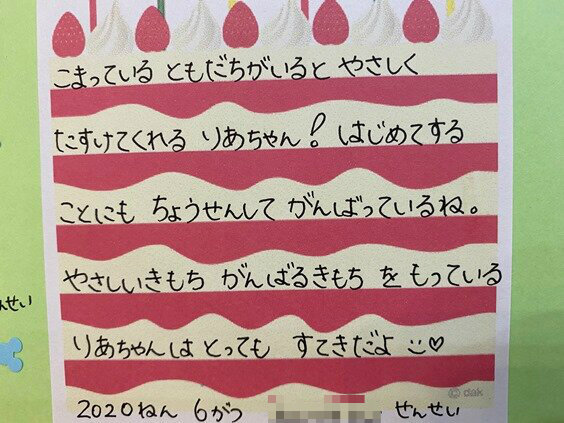 こまっている ともだちがいると やさしく
たすけてくれる りあちゃん! はじめてする
ことにも ちょうせんして がんばっているね。
やさしいきもち がんばるきもち を もっている
りあちゃんは とっても すてきだよ
© dak
2020ねん 6がつ せんせい
せい